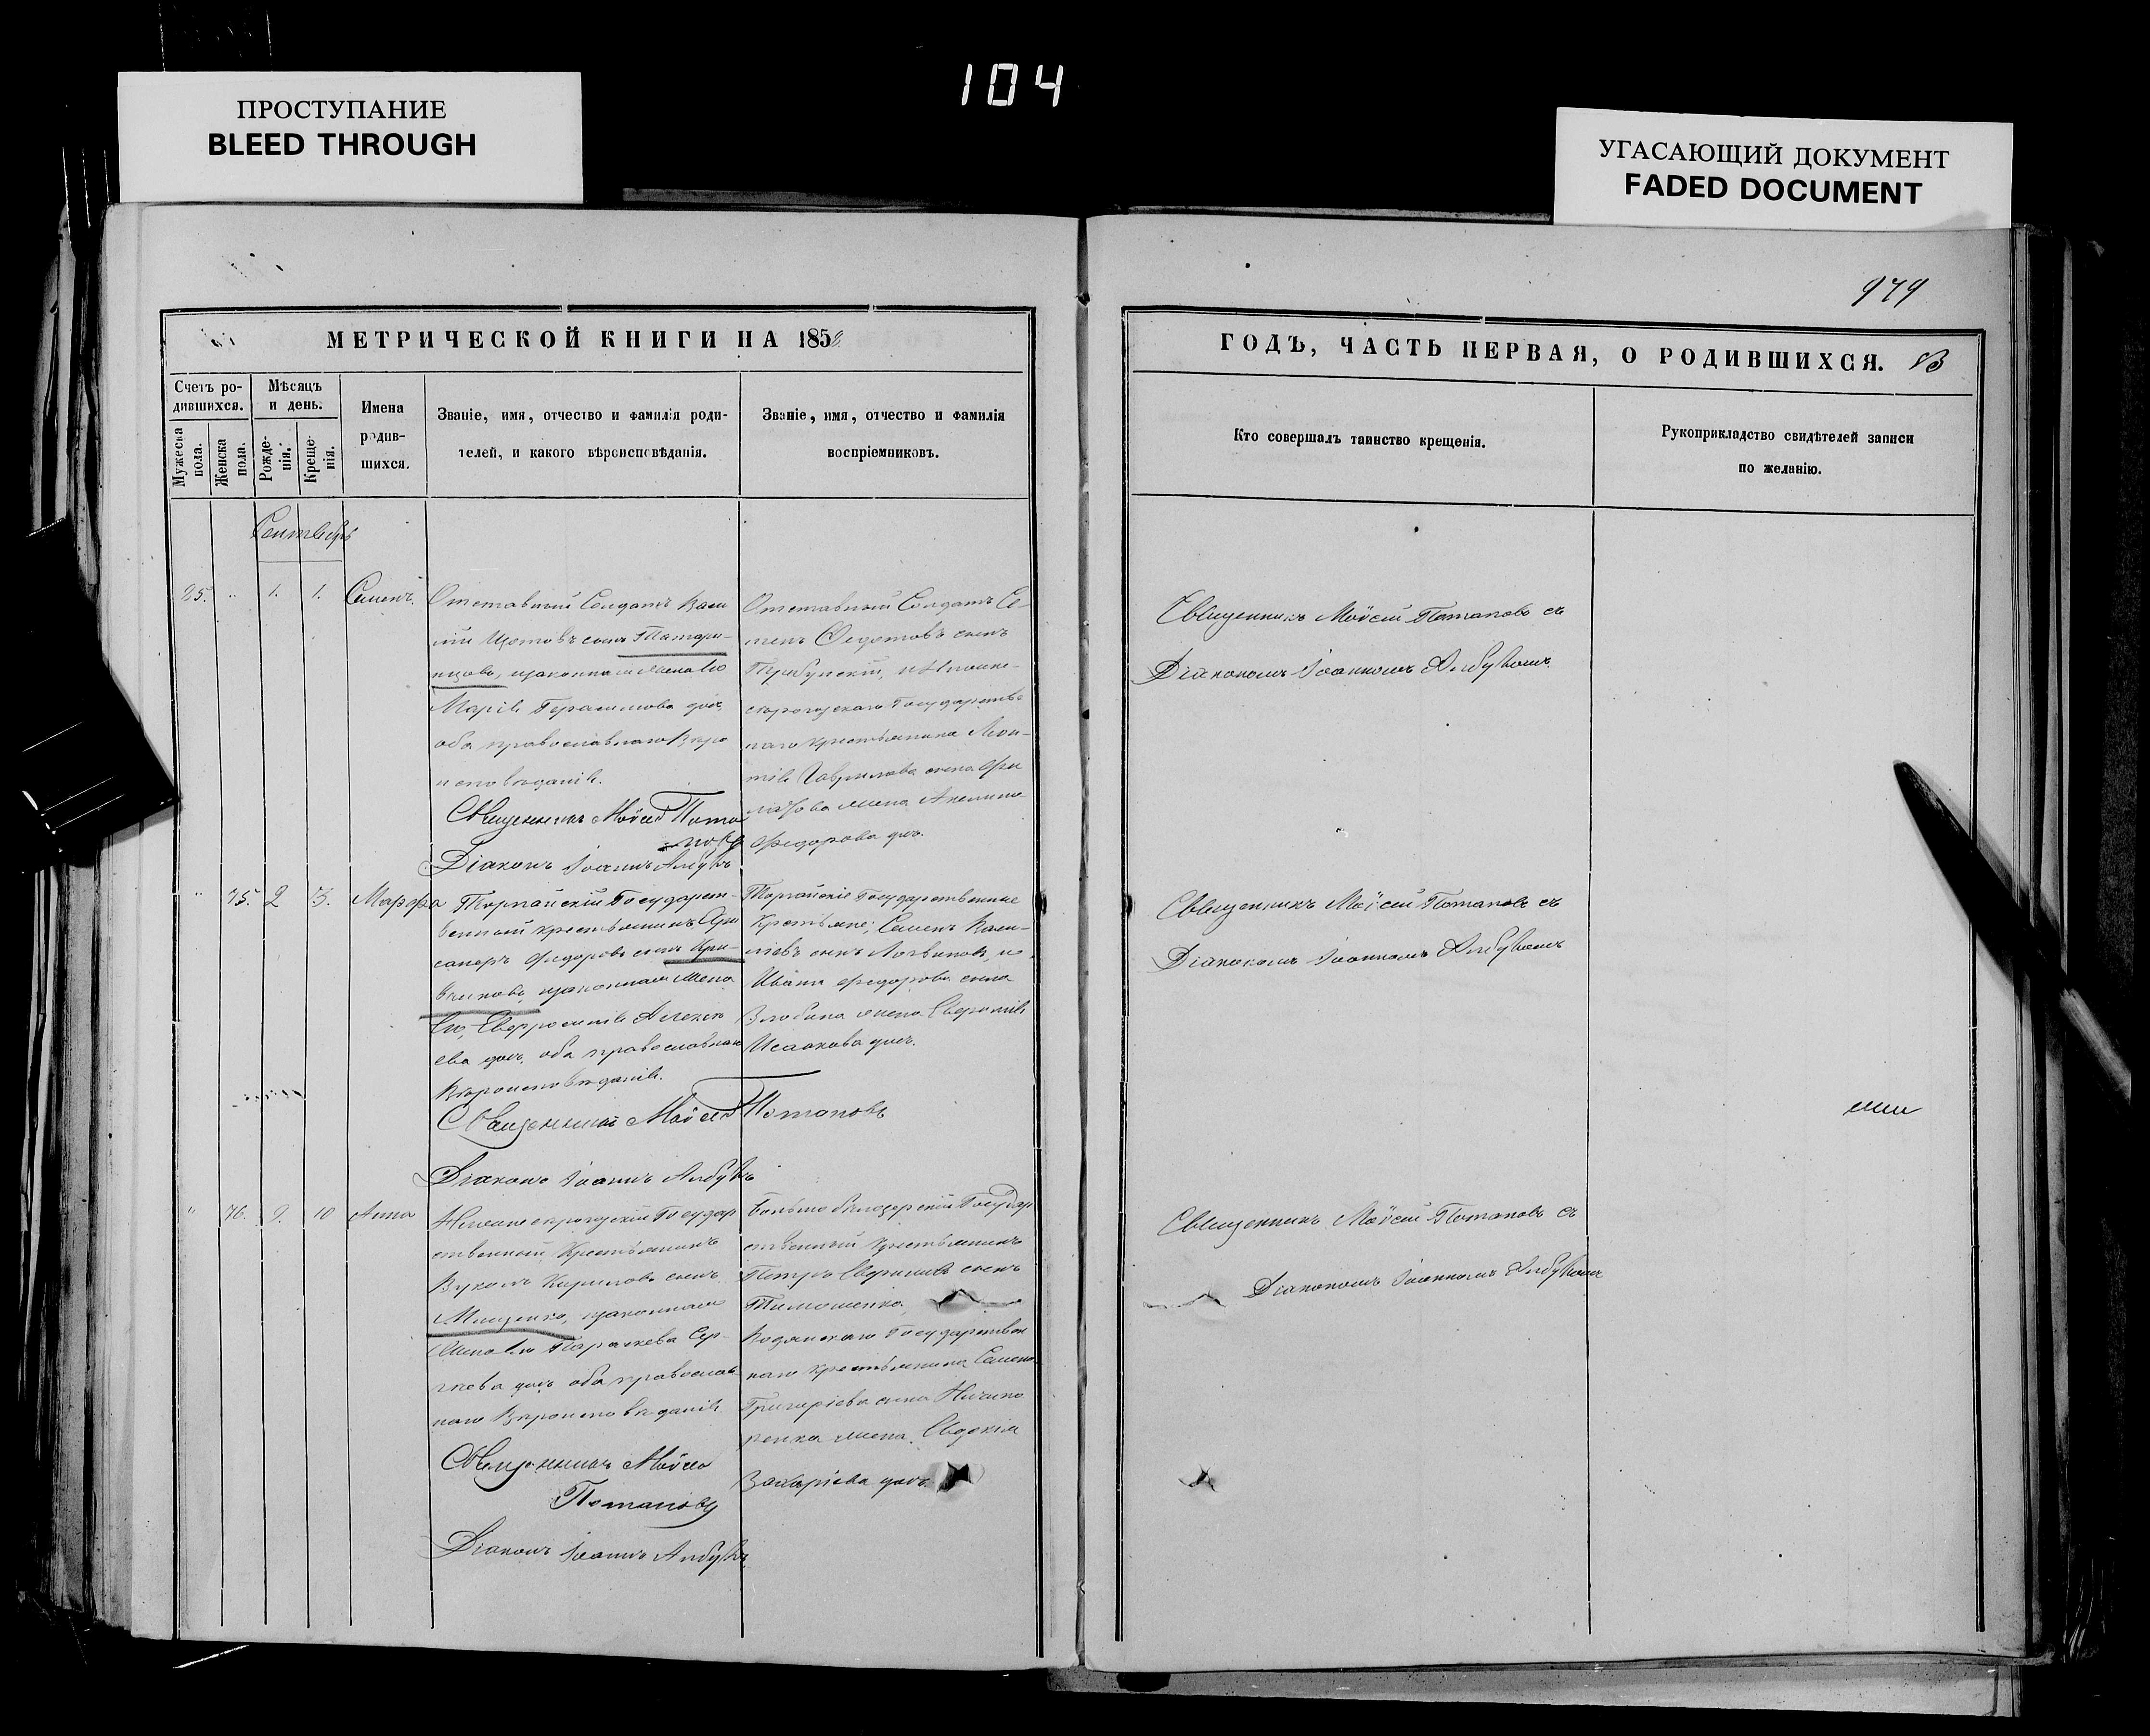 104
ПРОСТУПАНИЕ
BLEED THROUGH
УГАСАЮЩИЙ ДОКУМЕНТ
FADED DOCUMENT
979
МЕТРИЧЕСКОЙ КНИГИ НА 1858
Счетъ ро-
дившихся.
Мужеска
пола.
Женска
пола.
Мѣсяцъ
и день.
Рожде-
нія.
Креще-
нія.
Имена
родив-
шихся.
Званіе, имя, отчество и фамилія роди-
телей, и какого вѣроисповѣданія.
Званіе, имя, отчество и фамилія
воспріемниковъ.
Сентябрь
1. 1. Семенъ.
Отставный Солдатъ Васи
лій сынъ Татари-
нцовъ, и законная жена его
Марія Герасимова доч.
оба православнаго Вѣро
исповѣданія.
Священникъ Мойсей Пота
повъ
Діаконъ Іоаннъ
Отставный Солдатъ Се-
менъ Федотовъ сынъ
и
Государстве
наго крестьянина Леон-
тія Гаврилова сына Фи
жена Акилина
Федорова доч.
75. 2 3. Марфа
Государст-
венный крестьянинъ
Федоровъ сынъ Кри-
и законная жена
его, Евфросинія Алексѣ
ева доч. оба православнаго
Вѣроисповѣданія.
Священникъ Мойсей Потаповъ
Діаконъ Іоаннъ
Государственные
Крестьяне; Семенъ Васи-
ліевъ сынъ Логвиновъ, и
Ивана Федорова сына
Злобина жена Евфимія
Исаакова доч.
76. 9. 10 Анна
Государ
ственный Крестьянинъ
Вуколъ Кириловъ сынъ
Мищенко, и законная
жена его Параскева Сер-
гѣева доч. оба православ
наго Вѣроисповѣданія
Священникъ Мойсей
Потаповъ
Діаконъ Іоаннъ
Больше бѣлозерскій Государ
ственный крестьянинъ
Петръ Евфиміевъ сынъ
Тимошенко,
Водянскаго Государствен
наго крестьянина Семена
Григоріева сына Ничипо
ренка жена Евдокія
Захаріева доч.
ГОДЪ, ЧАСТЬ ПЕРВАЯ, О РОДИВШИХСЯ.
Кто совершалъ таинство крещенія.
Рукоприкладство свидѣтелей записи
по желанію.
Священникъ Мойсей Потаповъ съ
Діакономъ Іоанномъ
Священникъ Мойсей Потаповъ съ
Діакономъ Іоанномъ
Священникъ Мойсей Потаповъ съ
Діакономъ Іоанномъ